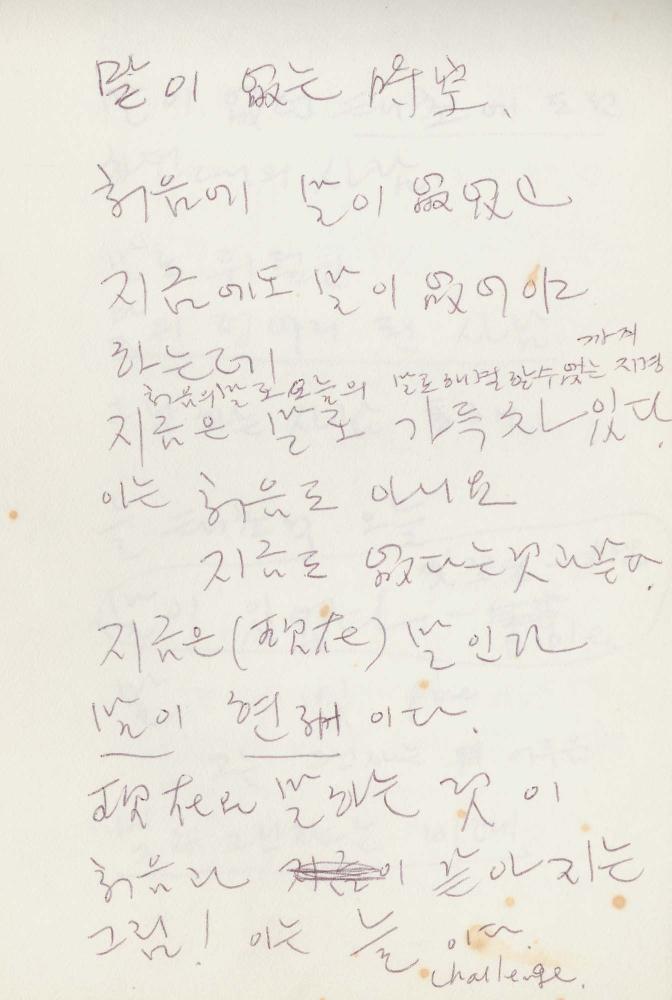 말이 없는 時空.
처음에 말이 없었고
지금에도 말이 없어야
하는데
까지
처음의 말로 오늘의 말로 해결 할 수 없는 지경
지금은 말로 가득 차 있다.
이는 처음도 아니요
지금도 없다는 것과 같다.
지금은 (現在) 말인라
말이 현재이다.
現在 말하는 것이
처음과 이 같아지는
그림! 이는 늘 이다.
challenge.